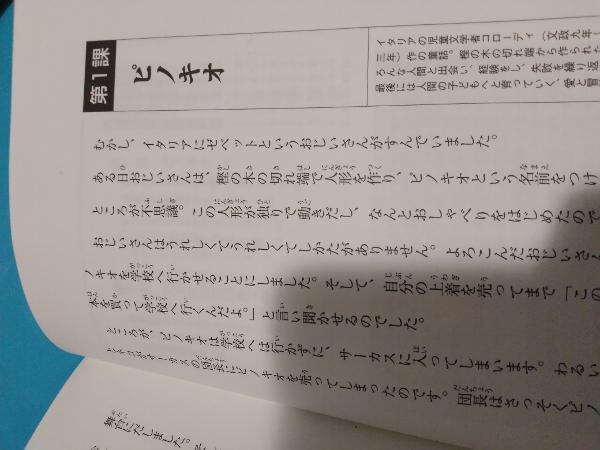 第1課
ピノキオ
イタリアの児童文学者コローディ(文政九年(
三年)作の童話。樫の木の切れ端から作られた
ろんな人間と出会い、経験をし、失敗を繰り返
最後には人間の子どもへと育っていく、愛と冒
むかし、イタリアにゼペットというおじいさんがすんでいました。
ある日おじいさんは、樫の木の切れ端で人形を作り、ピノキオという名前をつけ
ところが不思議。この人形が独りで動きだし、なんとおしゃべりをはじめたので
おじいさんはうれしくてうれしくてしかたがありません。よろこんだおじいさん
ノキオを学校へ行かせることにしました。そして、自分の上着を売ってまで「この
本を買って学校へ行くんだよ。」と言い聞かせるのでした。
ところが、ピノキオは学校へは行かずに、サーカスに入ってしまいます。わるい
サーカスの団長にピノキオを売ってしまったのです。団長はさっそくピノ
舞台にだしました。